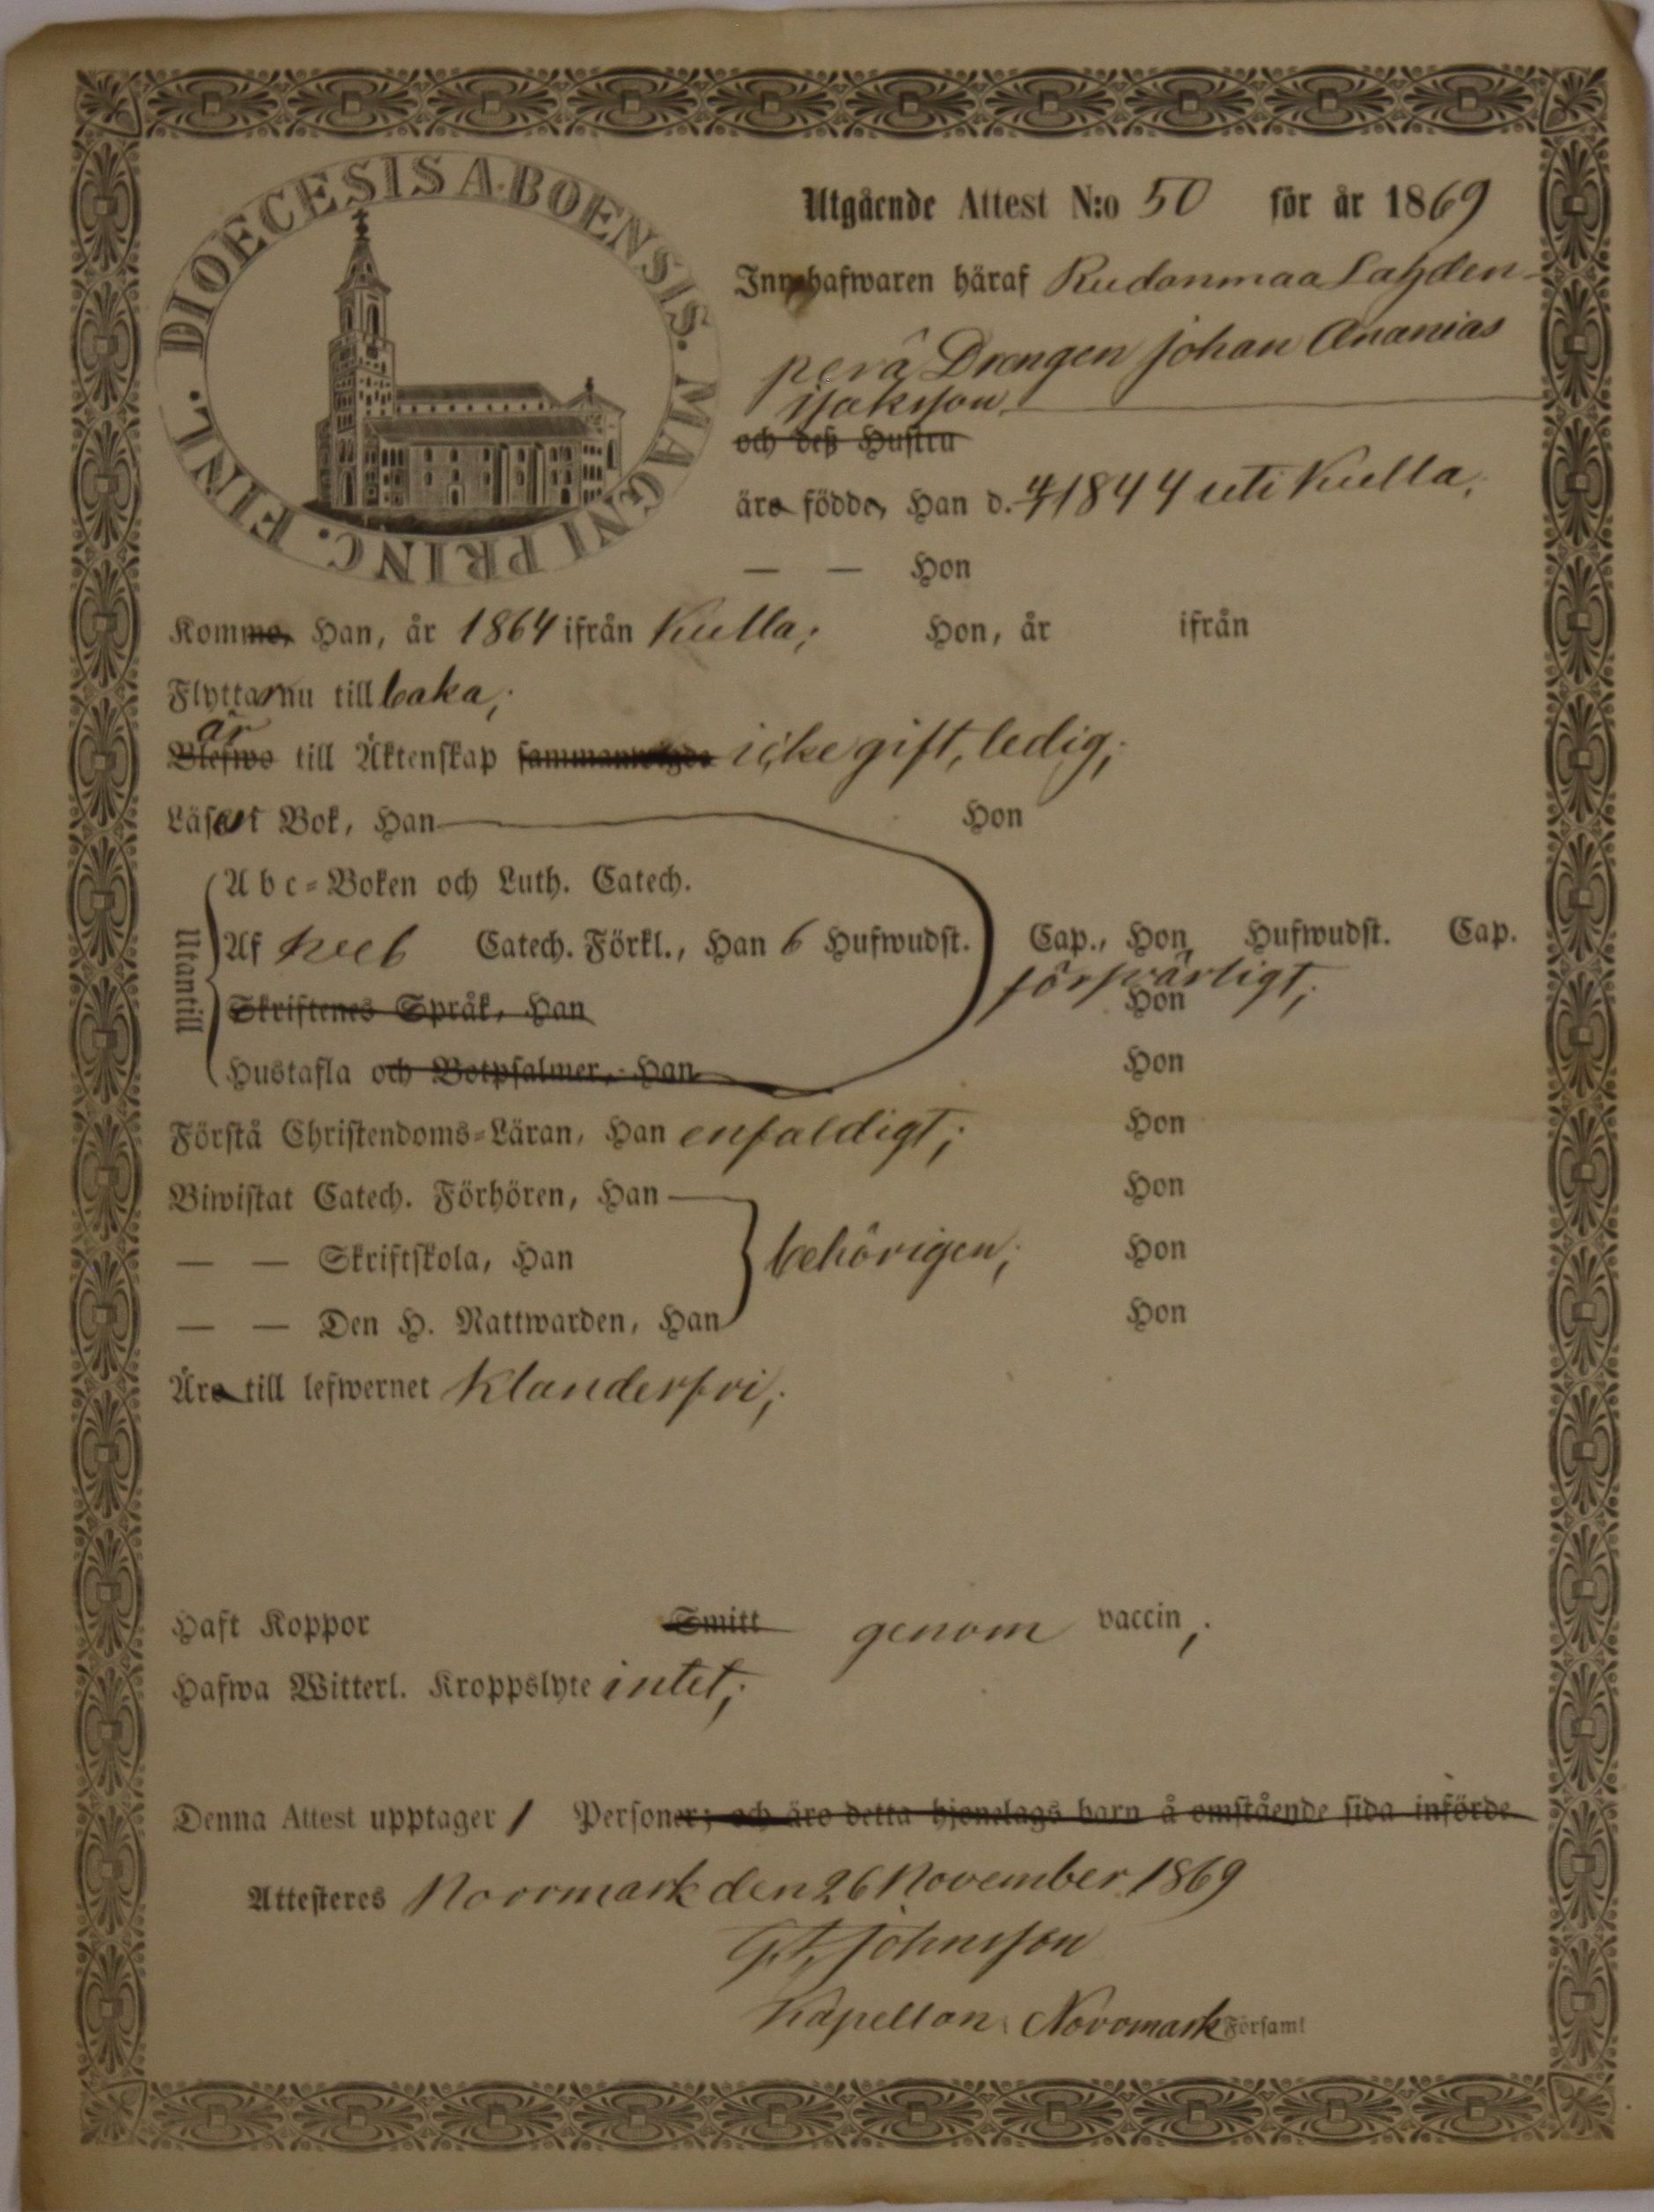 DIOECESIS ABOENSIS. MAGNI PRINC. FINL.
Utgående Attest N:o 50 för år 1869
Innehafwaren häraf Rudanmaa Lahden-
perä Drengen Johan Ananias
Isaksson
och deß Hustru
äro födde, Han d. 4/7 1844 uti Kulla,
— — Hon
Komme, Han, år 1864 ifrån Kulla; Hon, år ifrån
Flyttar nu till baka;
är
Blefwo till Äktenskap icke gift, ledig;
Läser i Bok, Han Hon
Utantill
Abc-Boken och Luth. Catech.
Af Catech. Förkl., Han 6 Hufwudst. Cap., Hon Hufwudst. Cap.
försvarligt;
Skriftenes Språk, Han Hon
Hustafla och Botpsalmer, Han Hon
Förstå Christendoms-Läran, Han enfaldigt; Hon
Biwistat Catech. Förhören, Han Hon
— — Skriftskola, Han behörigen; Hon
— — Den H. Nattwarden, Han Hon
Äro till lefwernet klanderfri;
Haft Koppor Smitt genom vaccin;
Hafwa Witterl. Kroppslyte intet;
Denna Attest upptager 1 Personer; och äro detta hjonelags barn å omstående sida införde
Attesteres Norrmark den 26 November 1869
Johnsson
Kapellan Norrmark Församl